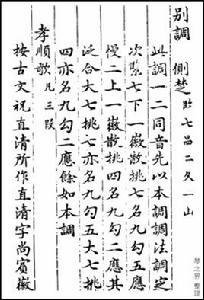 別調　側楚
此調一二同音先以本調調法調定
次緊七下一徽散挑七名九勾五應
慢二上一徽散挑四名九勾二應其
泛合大七挑七亦名九勾五大七挑
四亦名九勾二應餘如本調
孝順歌
按古文祝直清所作直清字尚賓徽